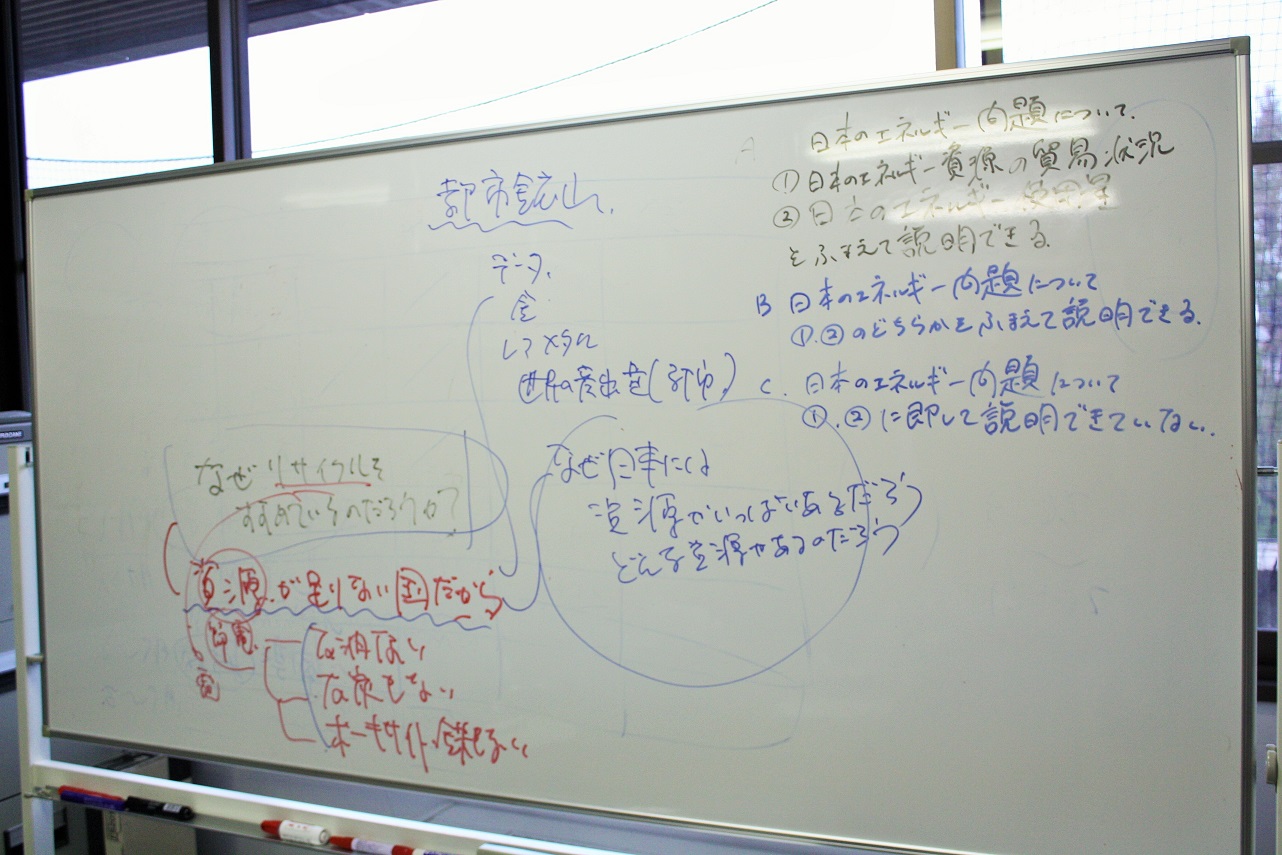 都市鉱山
データ
金
レアメタル
世界の産出量(都市)
なぜリサイクルを
すすめているのだろうか?
資源が足りない国だから
節電
電
石油ない
石炭もない
ボーキサイト、鉄もない
なぜ日本には
資源がいっぱいあるだろう
どんな資源があるのだろう
A
日本のエネルギー問題について.
① 日本のエネルギー資源の貿易状況
② 日本のエネルギー使用量
をふまえて説明できる.
B 日本のエネルギー問題について
①.②のどちらかをふまえて説明できる.
C. 日本のエネルギー問題について
①.②に即して説明できていない.